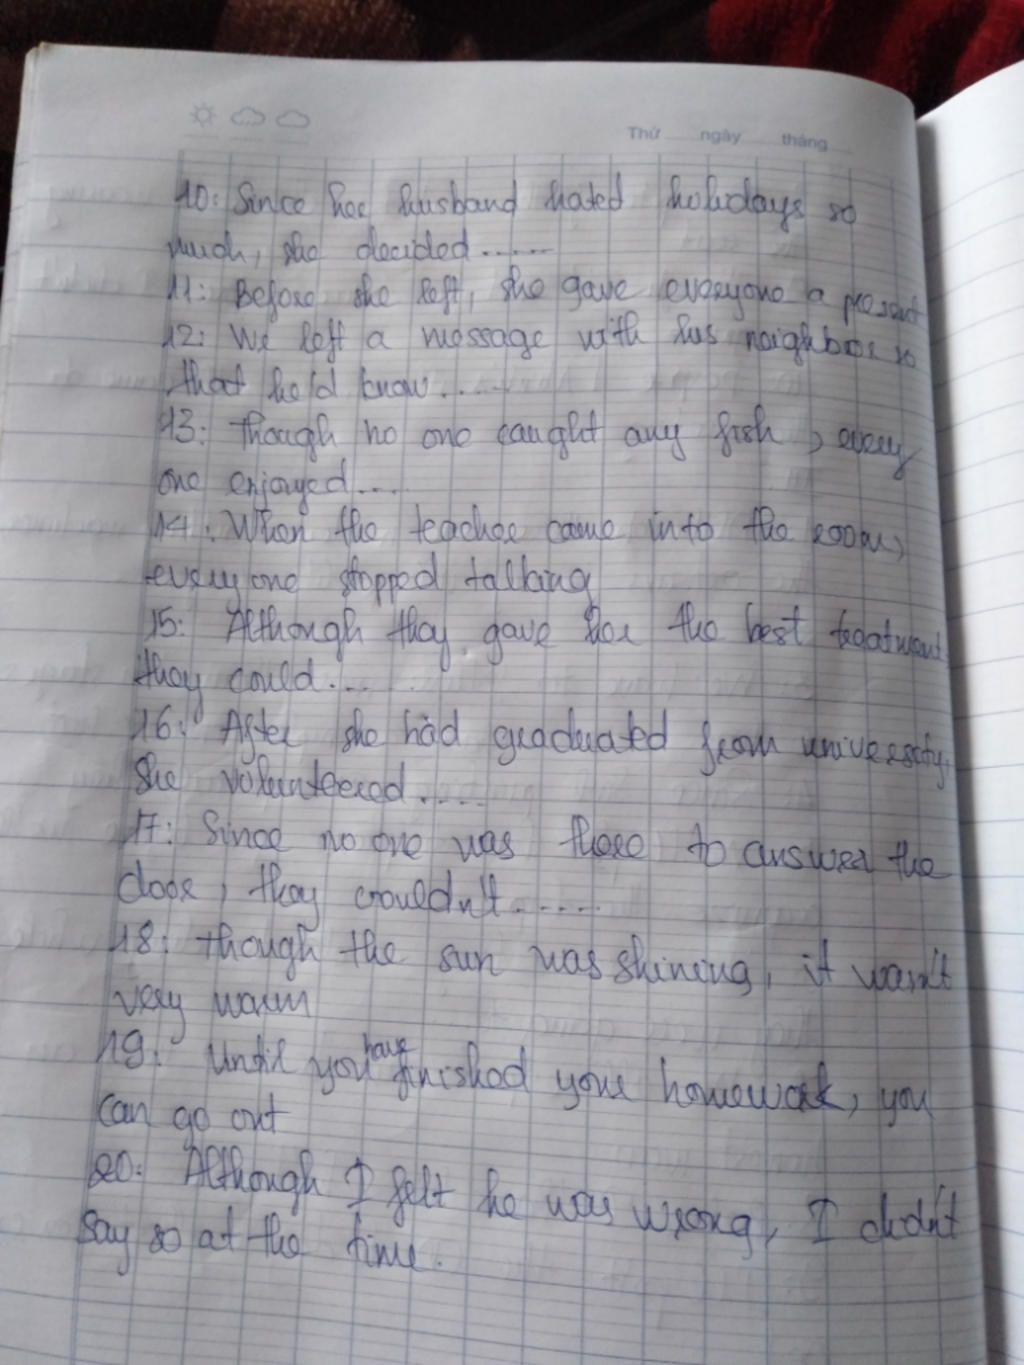 Thứ ngày tháng
10: Since her husband hated holidays so
much, she decided......
11: Before she left, she gave everyone a present
12: We left a message with his neighbor so
that he'd know.....
13: Though no one caught any fish, every
one enjoyed....
14: When the teacher came into the room,
everyone stopped talking
15: Although they gave her the best treatment
they could...
16: After she had graduated from university,
she volunteered.....
17: Since no one was there to answer the
door, they couldn't......
18: Though the sun was shining, it wasn't
very warm
19: Until you have finished your homework, you
can go out
20: Although I felt he was wrong, I didn't
say so at the time.